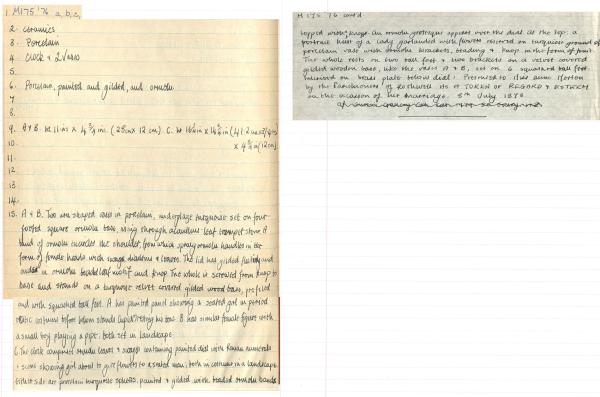 1 M175'76 a, b, c,
2. ceramics
3. Porcelain
4. Clock & 2 Vases
5
6. Porcelain, painted and gilded, and ormolu
7
8
9. A & B. ht 11 ins x 4 3/4 ins. (28cm x 12 cm). C. ht 16 1/4 in x
x 4 3/4 in (12cm)
10.
11.
12.
13.
14.
15. A & B. Two urn shaped vases in porcelain, underglaze turquoise set on four
footed square ormolu base, rising through acanthus leaf trumpet stem. A
band of ormolu encircles the shoulder, from which spring ormolu handles in the
form of female heads with swags & leaves. The lid has gilded and
ends in ormolu beaded leaf motif and knop. The whole is screwed from knop to
base and stands on a turquoise velvet covered gilded wood base, profiled
and with squashed ball feet. A has painted panel showing a seated girl in period
rustic costume before whom stands Cupid his bow. B has similar female figure with
a small boy playing a pipe, both set in landscape
C. The clock comprises ormolu leaves & swags containing painted dial with Roman numerals
& scene showing girl about to give flowers to a seated man, both in costume in a landscape.
Either side are porcelain turquoise spheres, painted & gilded with beaded ormolu bands
M175'76 contd
topped with knops. An ormolu grotesque appears over the dial. At the top: a
portrait bust of a lady garlanded with flowers reserved on turquoise ground of
porcelain vase with ormolu brackets, beading & knop in the form of fruit.
The whole rests on two ball feet & two brackets on a velvet covered
gilded wooden base, like the vases A & B, set on 6 squashed ball feet.
on brass plate below dial: Presented to Miss Afton
by the Parishioners of Rothwell as a TOKEN OF REGARD & ESTEEM
on the occasion of her marriage. 5th July 1876